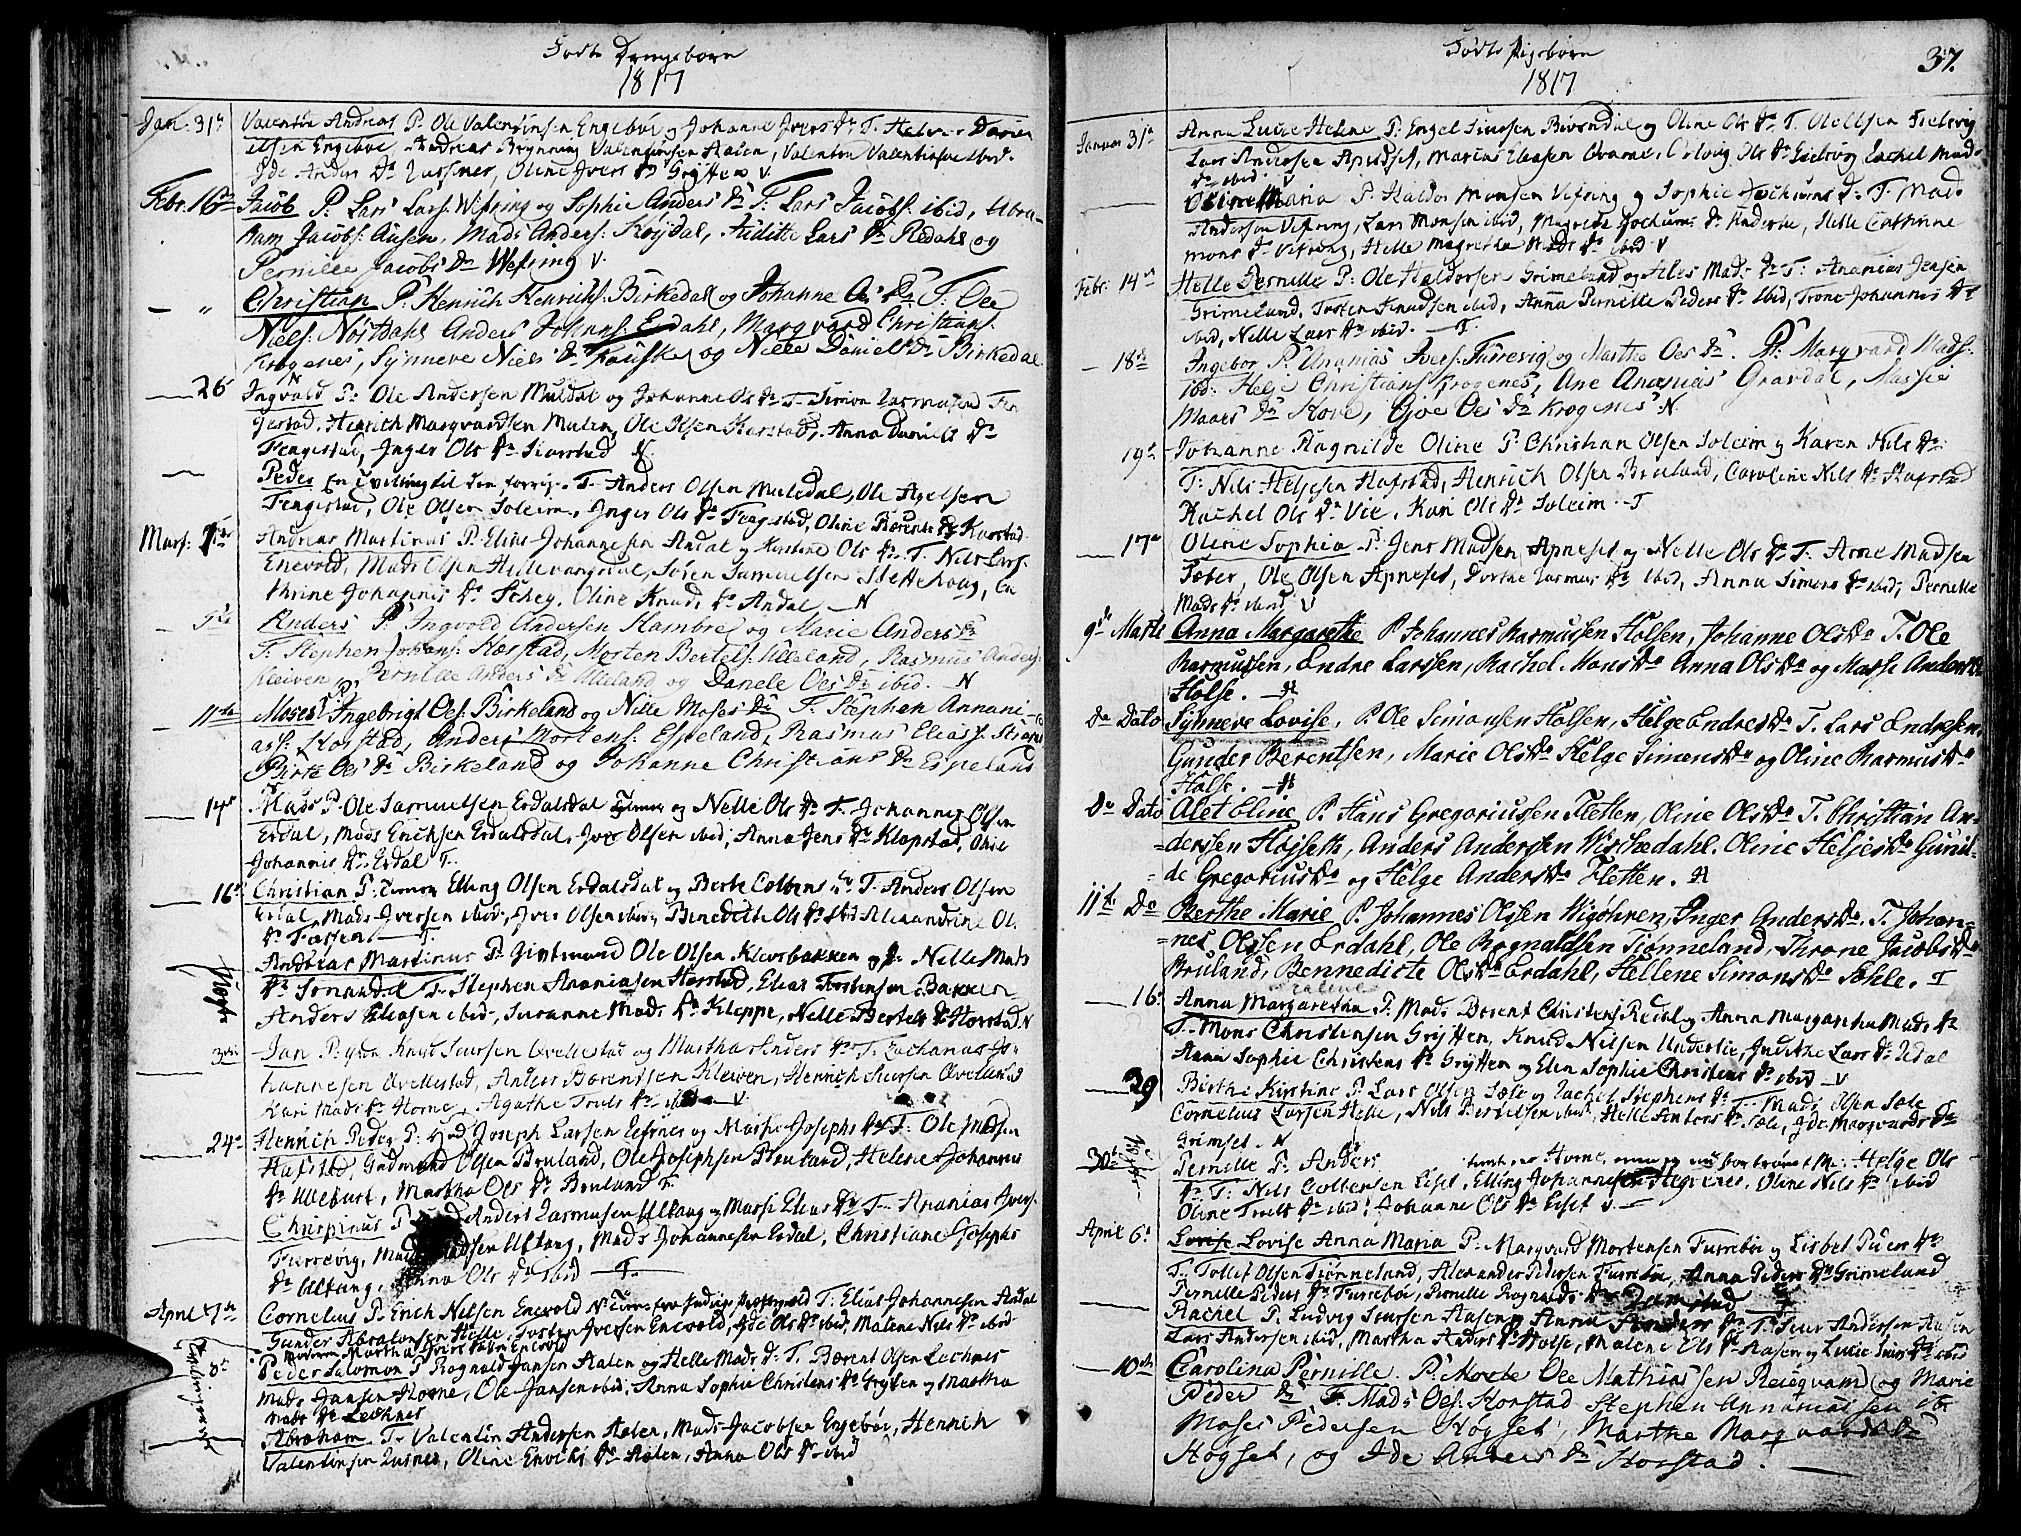 Fødte Drengebørn
1817
Jan: 31te Valentin Andreas P. Ole Valentinsen Engebøe og Johanne Ivers Dr T. Halvor Daniel
elsen Engebøe, Andreas Brynning Valentinsen Aalen, Valentin Valentinsen ibid.
Ide Anders Dr Russnes, Oline Ivers Dr Grytten V.
Febr. 16de Jacob P. Lars Lars: Wefring og Sophie Anders Dr T. Lars Jacobs: ibid, Abra-
ham Jacobs: Ausen, Mads Anders: Køjdal, Juditte Lars Dr Redahl og
Pernille Jacobs Dr Wefring V.
— " Christian P. Henrich Henrichs: Birkedall og Johanne Oes Dr T. Ole
Niels: Nørstdahl Anders Johans: Erdahl, Marqvard Christians:
Krogenes, Synneve Niels Dr Fauske og Nille Daniels Dr Birkedal
N
— 26 Ingvald P: Ole Andersen Muldal og Johanne Ols Dr T. Simon Rasmussen Fen
gestad, Henrich Marqvardsen Mulen, Ole Olsen Karstad, Anna Daniels Dr
Fengestad, Inger Ols Dr Karstad N.
— Peder En Tvilling til den forrige T. Anders Olsen Muledal, Ole Agelsen
Fengestad, Ole Olsen Soleim, Inger Ols Dr Fengestad, Oline Bærents Dr Karstad
Mars: 1ste Andreas Martinus P. Elias Johannesen Andal og Kirstine Ols Dr T. Nils Lars:
Enevold, Mads Olsen Hellevangdal, Søren Samuelsen Slettehaug, Ca
thrine Johannis Dr Schey, Oline Knuds Dr Andal — N
— 5te Anders P. Ingvold Andersen Hambre og Marie Anders Dr
T. Stephen Johans: Horstad, Morten Bertels: Ulleland, Rasmus Anders:
Kleiven, Pernille Anders Dr Ulleland og Danele Oes Dr ibid. — N
— 11te Moses P. Ingebrigt Oes: Birkeland og Nille Moses Dr T. Stephen Annani-
ass: Horstad, Anders Mortens: Espeland, Rasmus Eliass:
Birte Oes Dr Birkeland og Johanne Christians Dr Espeland
N
— 14de Mads P. Ole Samuelsen Erdalsdal og Nelle Ols Dr T. Johannes Olsen
Erdal, Mads Erichsen Erdalsdal, Iver Olsen ibid, Anna Jens Dr Klopstad, Oline
Johannis Dr Erdal T.
— 16de Christian P. Elling Olsen Erdalsdal og Berte Colbens Dr T. Anders Olsen
Erdal, Mads Iversen ibid, Iver Olsen ibid, Benedicte Ols Dr ibid Alexandrine Ol.
Dr Fassen — T.
Andreas Martinus P. Ole Olsen Klevsbakken og Nelle Mads
Dr T. Stephen Ananiasen Horstad, Elias Torstensen Bakken
Anders Eliasen ibid, Susanne Mads Dr Kleppe, Nelle Bertels Dr Horstad N
Jan P. Knud Siursen Qvellestad og Martha Anders Dr T. Zacharias Jo-
hannesen Qvellestad, Anders Børentsen Kleiven, Henrich Siursen Qvellestad
Kari Mads Dr Horne, Agathe Truls Dr ibid — V.
— 24de Henrich Peder P. Joseph Larsen Eefnes og Masse Josephs Dr T. Ole Madsen
Hafstad, Gudmund Olsen Bruland, Ole Josephsen Bruland, Helene Johannes
Dr Ullehust, Martha Ols Dr Bruland T.
Chrispinus P. Anders Rasmusen Ultang og Masse Elias Dr T. Ananias Ivers:
Furrevig, Ultang, Mads Johannesen Erdal, Christiane Josephs
Dr Ultang, Anna Ols Dr ibid — T.
April 7de Cornelius P. Erich Nilsen Enevold T. Elias Johannesen Andal
Gunder Absalonsen Helle, Torsten Iversen Enevold, Ide Ols Dr ibid, Malene Nils Dr ibid
Martha Ivers Dr Enevold
8de Peder Salomon P. Rognald Jansen Aalen og Helle Mads Dr T. Bærent Olsen Lechnes
Mads Jansen Horne, Ole Jansen ibid, Anna Sophie Christens Dr Grytten og Martha
Mads Dr Lechnes
Abraham. T. Valentin Andersen Aalen, Mads Jacobsen Engebøe, Henrich
Valentinsen Rusnes, Oline Enochs Dr Aalen, Anna Ols Dr ibid
Fødte Pigebørn
37.
1817
Januar 31te Anna Lucie Helene P. Engel Siursen Birkendal og Oline Ols Dr T. Ole Elsen Fielsvig
Lars Andersen Apnesset, Marius Eliasen Qvame, Solvig Ols Dr Fielsvig Rachel Mads
Dr ibid V
— Oline Maria P. Haldor Monsen Vefring og Sophie Jochums Dr T. Mads
Andersen Vefring, Lars Monsen ibid, Magrethe Jochums Dr Underlie, Helle Cathrine
Mons Dr Vefring, Helle Magretha Mads Dr ibid V
Febr: 14de Helle Pernille P. Ole Haldorsen Grimeland og Ales Mads Dr T. Ananias Jensen
Grimeland, Torsten Knudsen ibid, Anna Pernille Peders Dr ibid, Trone Johannes Dr
ibid, Nille Lars Dr ibid. — T.
— 18de Ingebor P. Ananias Ivers: Furrevig og Marthe Oes Dr. T. Marqvard Mads:
ibd: Helge Christians Krogenes, Ane Ananias Gravdal, Massie
Maars Dr Hove, Gjoe Oes Dr Krogenes N.
19de Johanne Ragnilde Oline P. Christian Olsen Soleim og Karen Nils Dr
T. Nils Helgesen Hafstad, Henrich Olsen Bruland, Caroline Nils Dr Hafstad
Rachel Ols Dr Vie, Kari Ols Dr Soleim. T
— 17de Oline Sophia P. Jens Madsen Apneset og Nelle Ols Dr T. Arne Madsen
Sæter, Ole Olsen Apneset, Dorthe Rasmus Dr ibid, Anna Simons Dr ibid, Pernille
Mads Dr ibid V
9de Marts Anna Margarethe P. Johannes Rasmussen Holsen, Johanne Olsdr T. Ole
Rasmussen, Endre Larssen, Rachel Monsdr Anna Olsdr og Masse Andersdr
Holse. — N
Do Dato Synneve Lovise, P. Ole Simonsen Holsen, Helge Endresdr T. Lars Endresen,
Gunder Berentsen, Marie Olsdr Helge Simonsdr og Oline Rasmusdr
Holse. — N
Do Dato Alet Eline P. Hans Gregoriussen Fletten, Oline Olsdr T. Christian An-
derssen Højseth, Anders Andersen Wistedahl. Oline Heljesdr Gunil-
de Gregoriusdr og Helge Andersdr Fletten. N
11te Do Berthe Marie P. Johannes Olssen Wigøhren, Inger Andersdr, T. Johan-
nes Olssen Erdahl, Ole Rognaldsen Tiønneland, Throne Jacobsdr
Bruland, Bennedicte Olsdr Erdahl, Hellene Simonsdr Sæhle. T
— 16. Anna Margaretha P. Mads Børent Christens: Redal og Anna Margaretha Mads Dr
T. Mons Christensen Grytten, Knud Nilsen Underlie, Judithe Lars Dr Redal
Anna Sophie Christens Dr Grytten og Elen Sophie Christens Dr ibid — V
— 29 Birthe Kirstine P. Lars Olsen Sæle og Rachel Stephens Dr T. Mads Olsen Sæle
Cornelius Larsen Helle, Nils Bertelsen ibid, Helle Antons Dr Sæle, Ide Marqvards Dr
Grimset. N
30te Pernille P. Anders Horne, Helge Ols
Dr T: Nils Colbensen Eiset, Elling Johannesen Hegrenes, Oline Nils Dr ibid
Oline Truels Dr ibid, Johanne Ols Dr Eiset V —
April 6te Lovise Anna Maria P. Marqvard Mortensen Furrebøe og Lisbet Peders Dr
T. Tollef Olsen Tiønneland, Alexander Pedersen Furrebøe, Anna Peders Dr Grimeland
Pernille Peders Dr Furrebøe, Pernille Rognalds Dr
— Rachel P. Ludvig Siursen Aasen og Anna Anders Dr T. Siur Andersen Aasen
Lars Andersen ibid, Martha Anders Dr Holse, Malene Els Dr Aasen og Lucie Siurs Dr ibid
— 10de Carolina Pernille. P. Ole Mathiassen Reieqvam og Marie
Peders Dr T. Mads Oes: Horstad Stephen Annaniassen ib
Moses Pedersen Høgset, Marthe Marqvards Dr
Høgset, og Ide Anders Dr Horstad. —